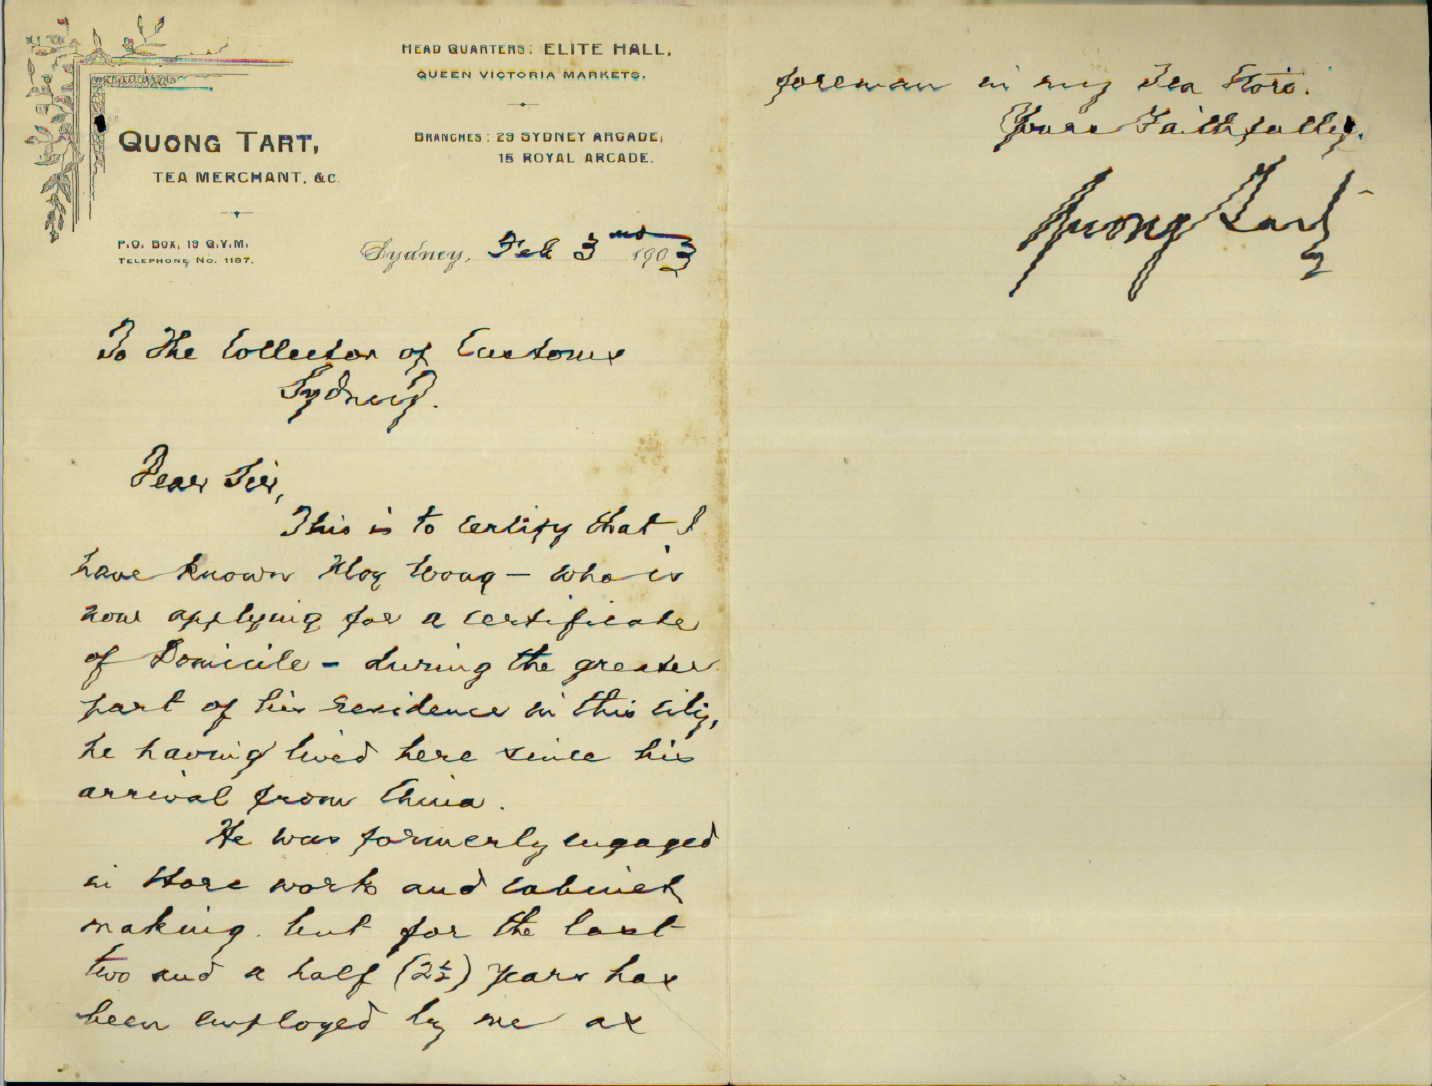 HEAD QUARTERS: ELITE HALL,
QUEEN VICTORIA MARKETS.
QUONG TART,
TEA MERCHANT, &C.
BRANCHES: 29 SYDNEY ARCADE,
15 ROYAL ARCADE.
P.O. BOX, 19 Q.V.M.
TELEPHONE NO. 1187.
Sydney, Feb 3rd 1903
To The Collector of Customs
Sydney.
Dear Sir,
This is to certify that I
have known Wong – who is
now applying for a certificate
of Domicile – during the greater
part of his residence in this city,
he having lived here since his
arrival from China.
He was formerly engaged
in store work and cabinet
making. but for the last
two and a half (2½) years has
been employed by me as
foreman in my Tea Store.
Yours Faithfully.
Quong Tart